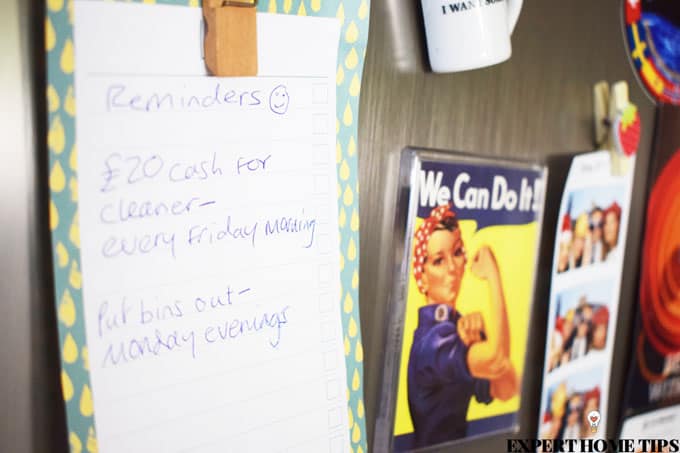 Reminders
£20 cash for
cleaner-
every Friday Morning
Put bins out-
Monday evenings
I WANT
We Can Do It!
EXPERT HOME TIPS